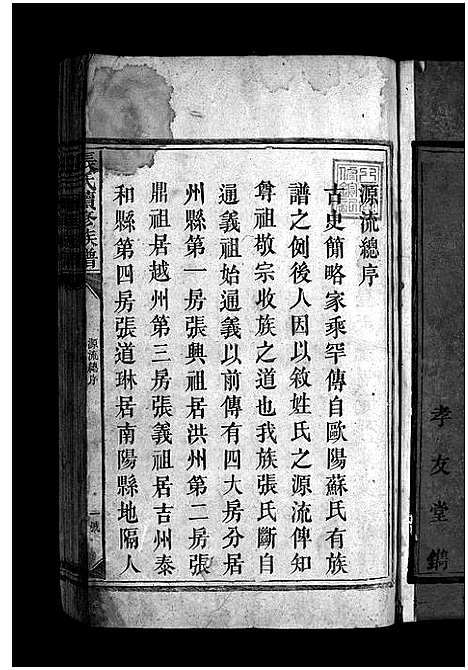 孝友堂鐫
源流總序
古史簡略家乘罕傳自歐陽蘇氏有族
譜之例後人因以敘姓氏之源流俾知
尊祖敬宗收族之道也我族張氏斷自
通義祖始通義以前傳有四大房分居
州縣第一房張興祖居洪州第二房張
鼎祖居越州第三房張義祖居吉州泰
和縣第四房張道琳居南陽縣地隔人
張氏續修族譜
源流總序
一號